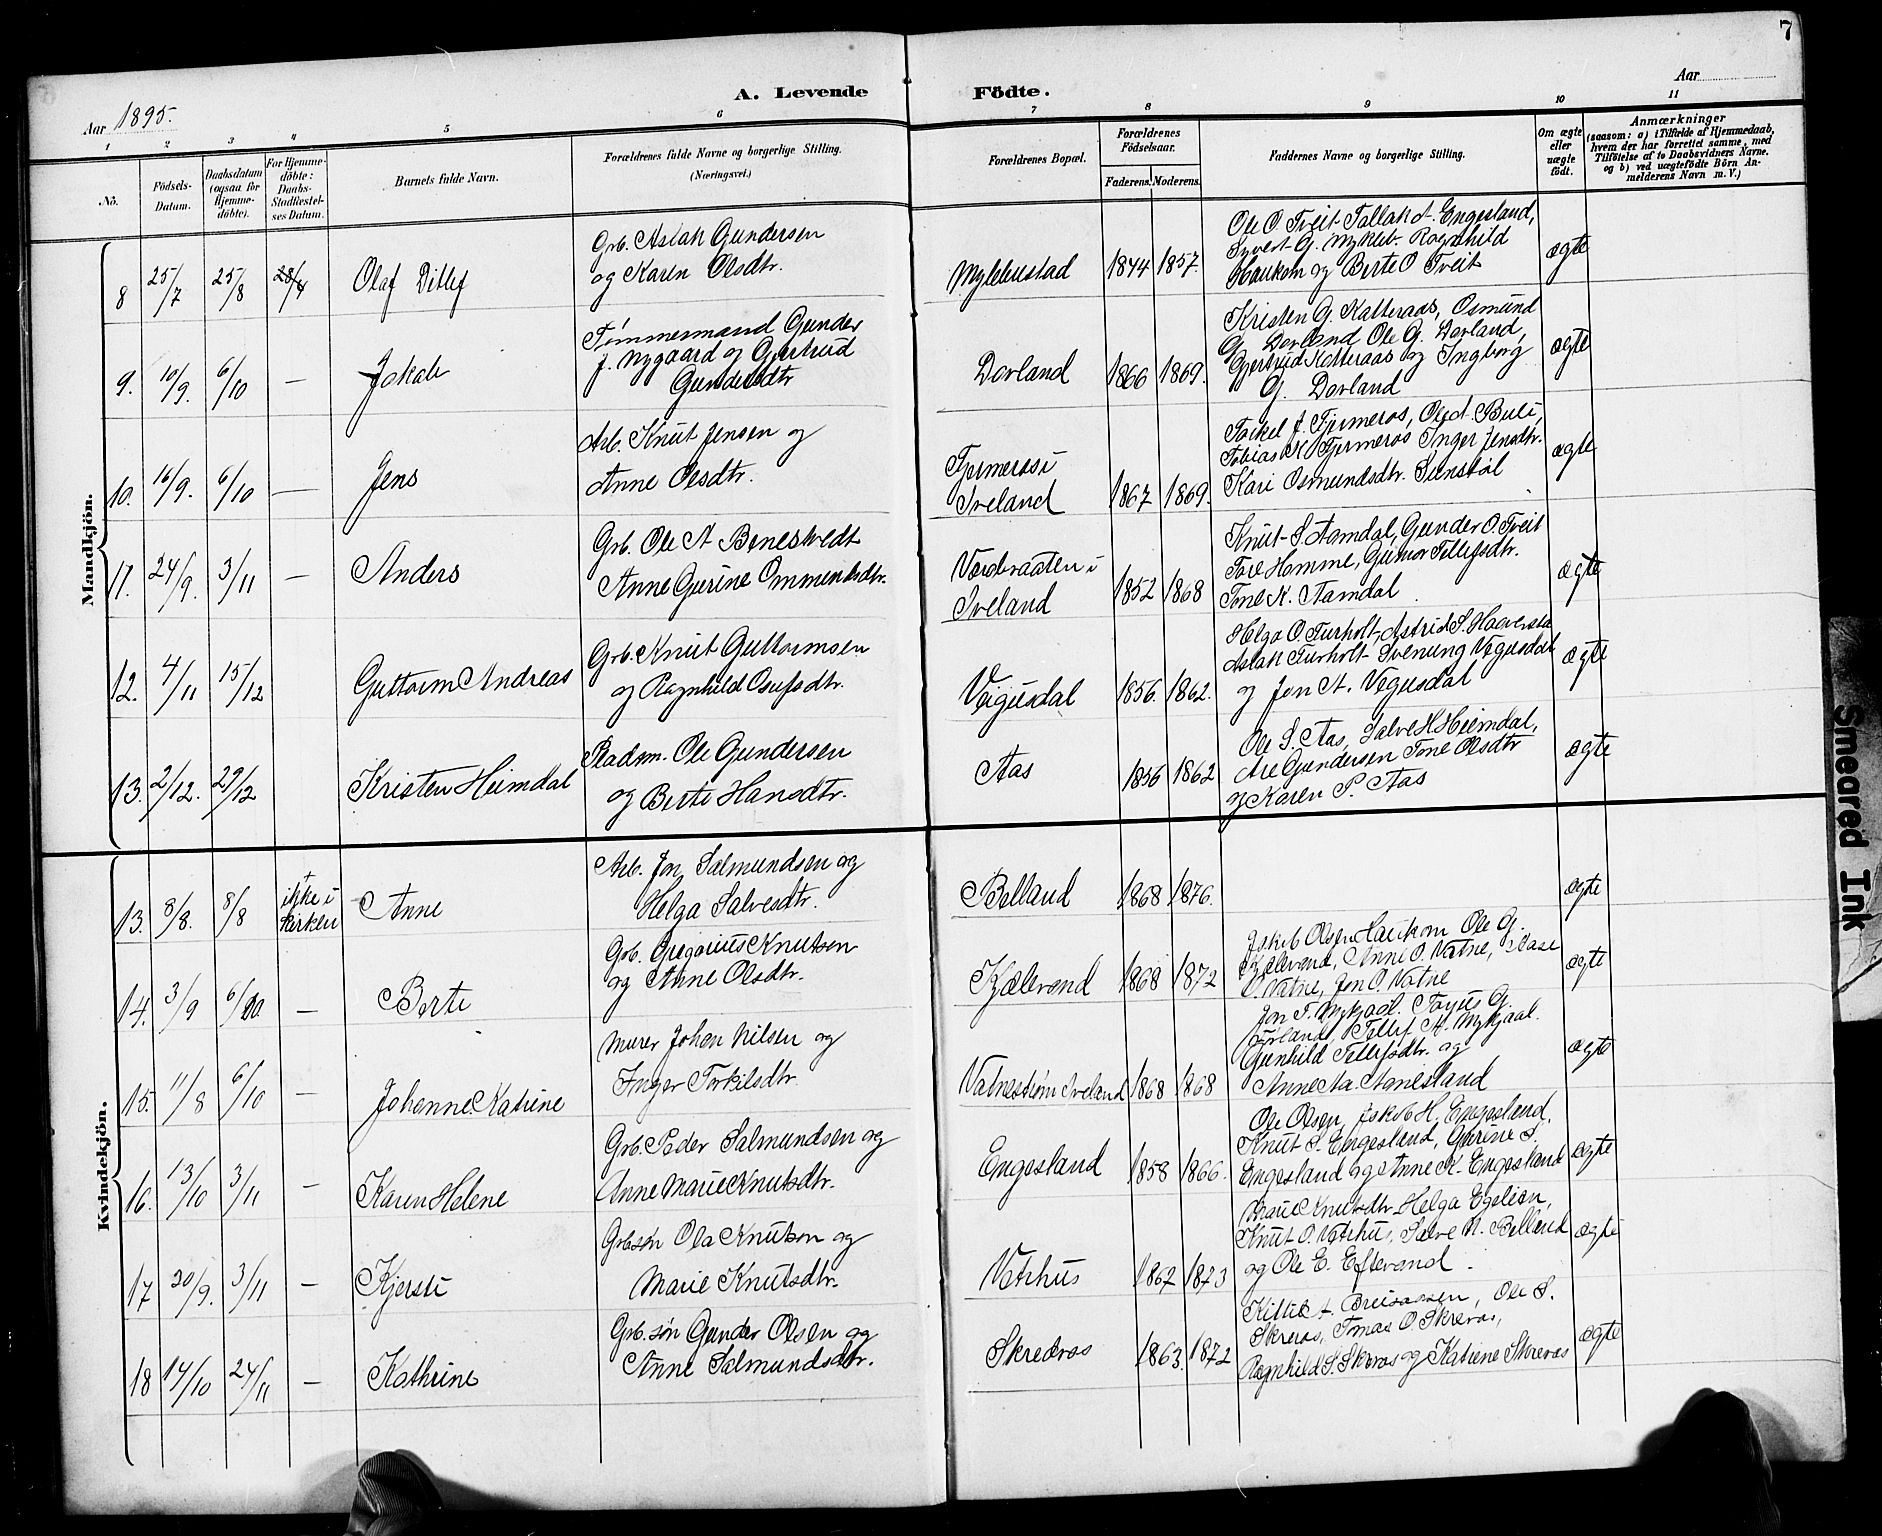 7
Aar 1895.
A. Levende Födte.
Aar
1 2 3 4 5 6 7 8 9 10 11
Nö.
Födsels-Datum.
Daabsdatum (ogsaa for Hjemme-döbte).
For Hjemme-döbte: Daabs-Stadfæstel-ses Datum.
Barnets fulde Navn.
Forældrenes fulde Navne og borgerlige Stilling.
(Næringsvei.)
Forældrenes Bopæl.
Forældrenes Födselsaar.
Faderens. Moderens.
Faddernes Navne og borgerlige Stilling.
Om ægte eller uægte födt.
Anmærkninger
(saasom: a) i Tilfælde af Hjemmedaab, hvem der har forrettet samme, med Tilföielse af to Daabsvidners Navne. og b) ved uægtefödte Börn An-melderens Navn m. V.)
Mandkjön.
8 25/7 25/8 28/4 Olaf Ditlef
Grb. Aslak Gundersen
og Karen Olsdtr.
Myklebustad 1844 1857.
Ole O. Tveit Tallak A. Engesland,
Syvert G. Mykleb. Ragnhild
Haukom og Berte O Tveit
ægte
9. 10/9. 6/10 — Jakob
Tømmermand Gunder
J. Nygaard og Gjertrud
Gundersdtr
Dovland 1866 1869.
Kristen G. Katteraas, Osmund
G. Dovland Ole G. Dovland,
Gjertrud Katteraas og Ingborg
G. Dovland
ægte
10. 16/9. 6/10 — Jens
Arb. Knut Jensen og
Anne Olsdtr.
Fjermeros i
Iveland 1867 1869.
Torkel J. Fjermeros, Ole A. Buli,
Tobias K Fjermeros Inger Jensdtr.
Kari Osmundsdtr. Senstøl
ægte
11. 24/9. 3/11 — Anders
Grb. Ole A Benestvedt
Anne Gurine Ommundsdtr.
Vordraaten i
Iveland 1852 1868
Knut S Aamdal, Gunder O. Tveit
Tore Homme, Gumor Tellefsdtr.
Tone K. Aamdal.
ægte
12. 4/11 15/12 Guttorm Andreas
Grb. Knut Guttormsen
og Ragnhild Osufsdtr.
Veigusdal 1856. 1862.
Helga O. Furholt, Astrid S. Haaversta
Aslak Furholt, Svenung Vegusdal
og Jon A. Vegusdal
ægte
13. 2/12. 29/12 Kristen Heimdal
Pladsm. Ole Gundersen
og Berte Hansdtr.
Aas 1856 1862
Ole S. Aas, Salve H Heimdal,
Are Gundersen Tone Olsdtr
og Karen P. Aas
ægte
Kvindekjön.
13. 8/8. 8/8 ikke i kirken Anne
Arb. Jon Salmundsen og
Helga Salvesdtr.
Belland 1868 1876.
ægte
14. 3/9 6/10. — Berte
Grb. Gregorius Knutsen
og Anne Olsdtr.
Kjælevand 1868 1872
Jakob Olsen Haukom Ole G.
Kjælevand, Anne O. Vatne, Aase
O. Vatne, Jon O. Vatne
ægte
15. 11/8 6/10 — Johanne Katrine
Murer Johan Nilsen og
Inger Torkilsdtr.
Vatnestrøm Iveland 1868 1868
Jon T. Mykjaal. Tarjus G.
Tellef A. Mykjaal.
Gunhild Tellefsdtr. og
Anne Aa Aanesland
ægte
16. 13/10 3/11 — Karen Helene
Grb. Peder Salmundsen og
Anne Marie Knutsdtr.
Engesland 1858 1866.
Ole Olsen, Jakob H. Engesland.
Knut S. Engesland, Gurine S.
Engesland og Anne K. Engesland
ægte
17 20/9. 3/11 — Kjersti
Grb søn Ola Knutson og
Marie Knutsdtr.
Vatshus 1867 1873
Marie Knutsdtr Helga Egelien,
Knut O. Vatshus, Salve N. Belland
og Ole E. Eftevand.
ægte
18 14/10 24/11 — Kathrine
Grb. søn Gunder Olsen og
Anne Salmundsdtr.
Skreros 1863. 1872
Kittil A. Breisaasen, Ole S.
Skreros, Tomas O. Skreros,
Ragnhild S. Skreros og Katrine Skreros
ægte
Smeared Ink